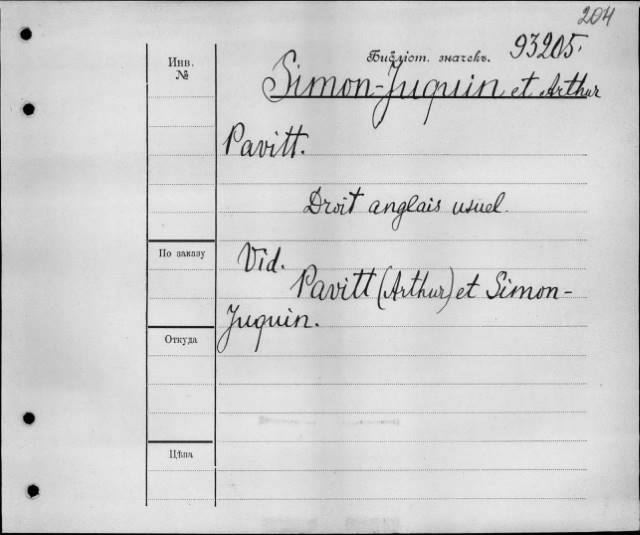 204
Библіот. значекъ. 93205.
Инв. №
Simon-Juquin et Arthur
Pavitt.
Droit anglais usuel.
По заказу
Vid.
Pavitt (Arthur) et Simon-
Juquin.
Откуда
Цѣна